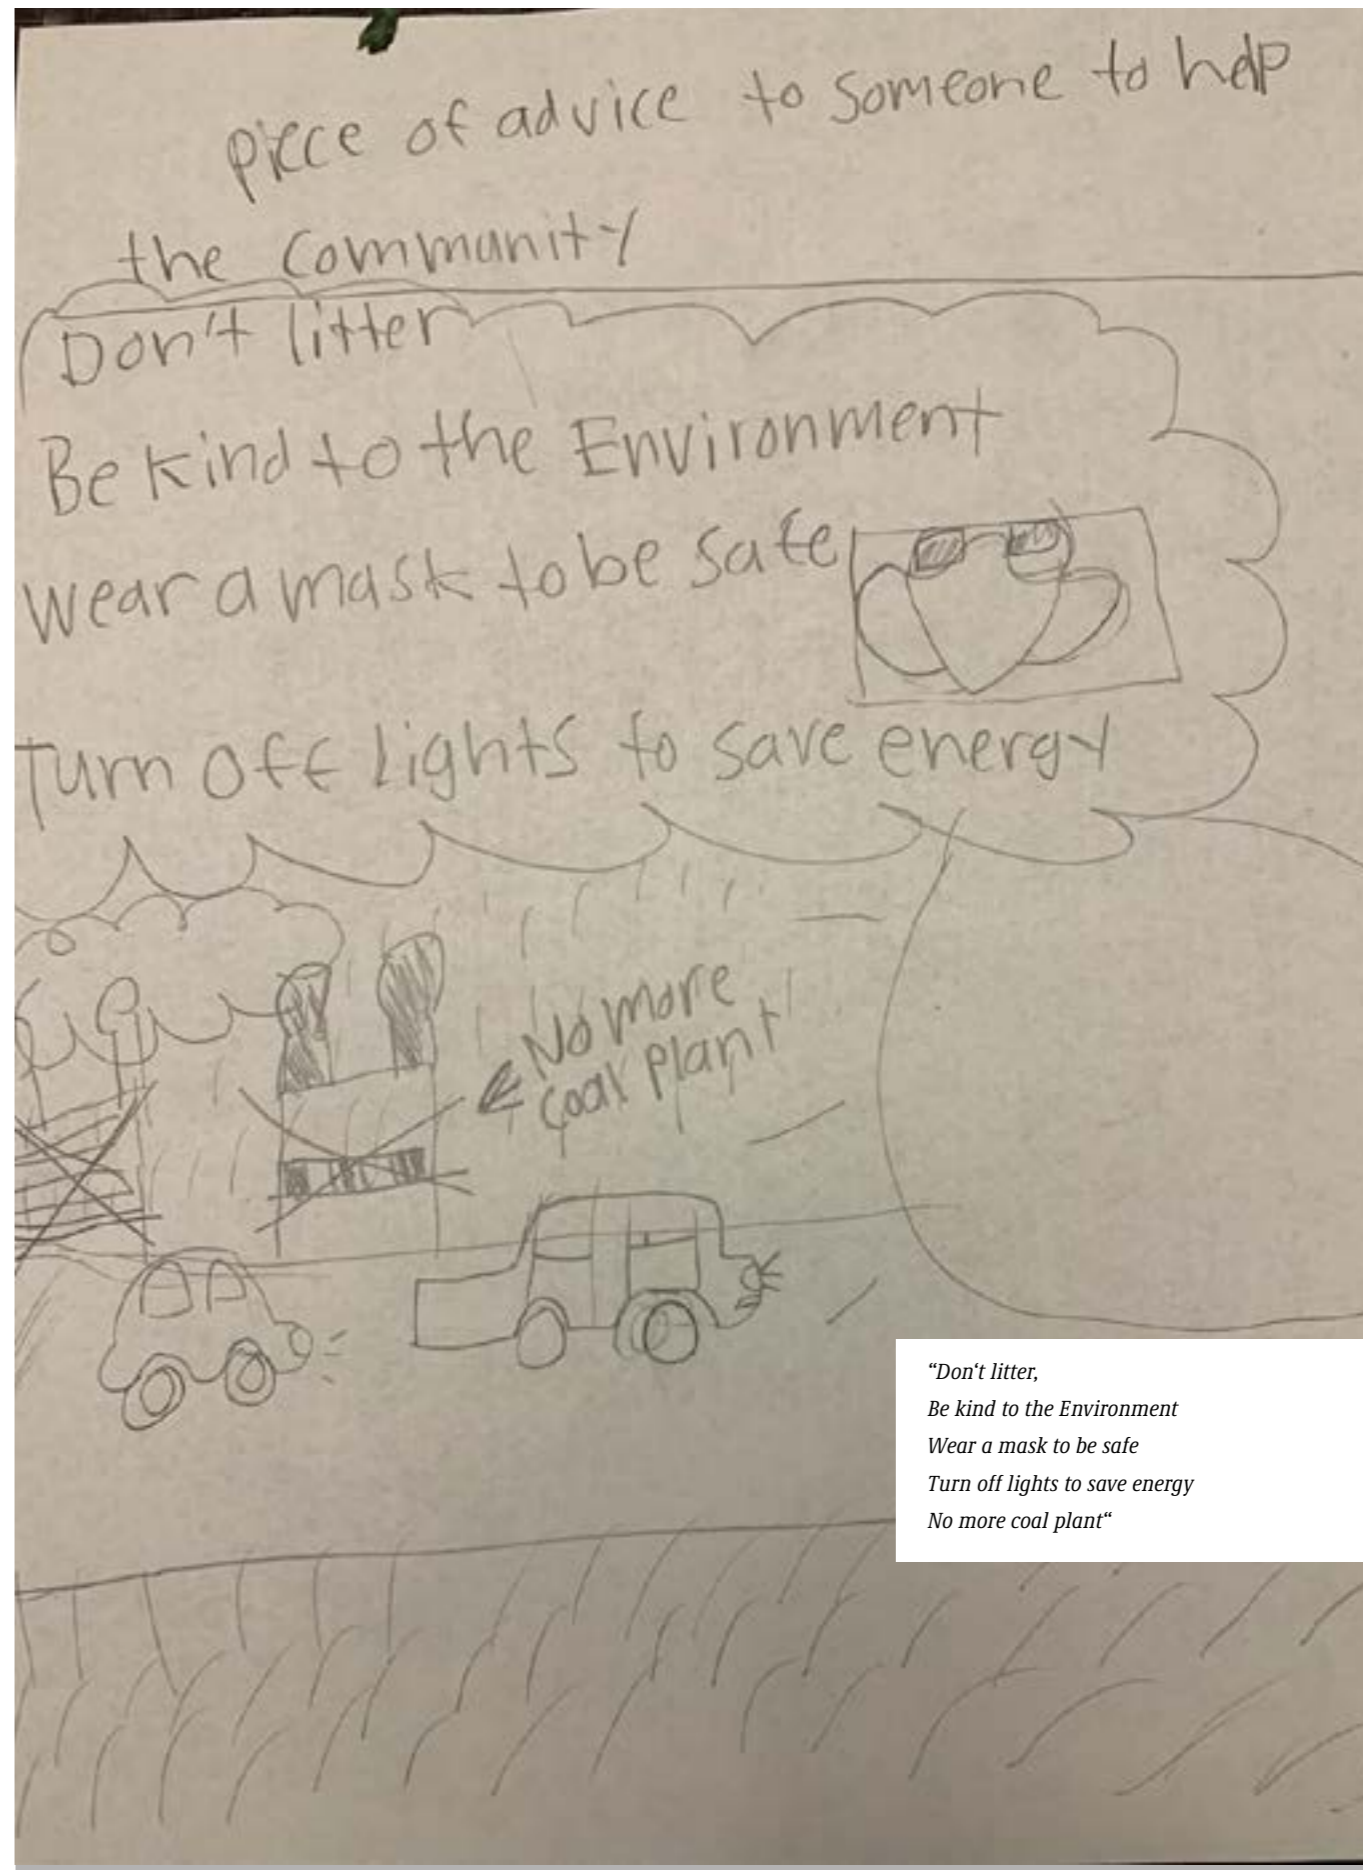 piece of advice to someone to help
the Community
Don't litter
Be kind to the Environment
wear a mask to be safe
Turn off lights to save energy
No more
coal plant
“Don‘t litter,
Be kind to the Environment
Wear a mask to be safe
Turn off lights to save energy
No more coal plant“